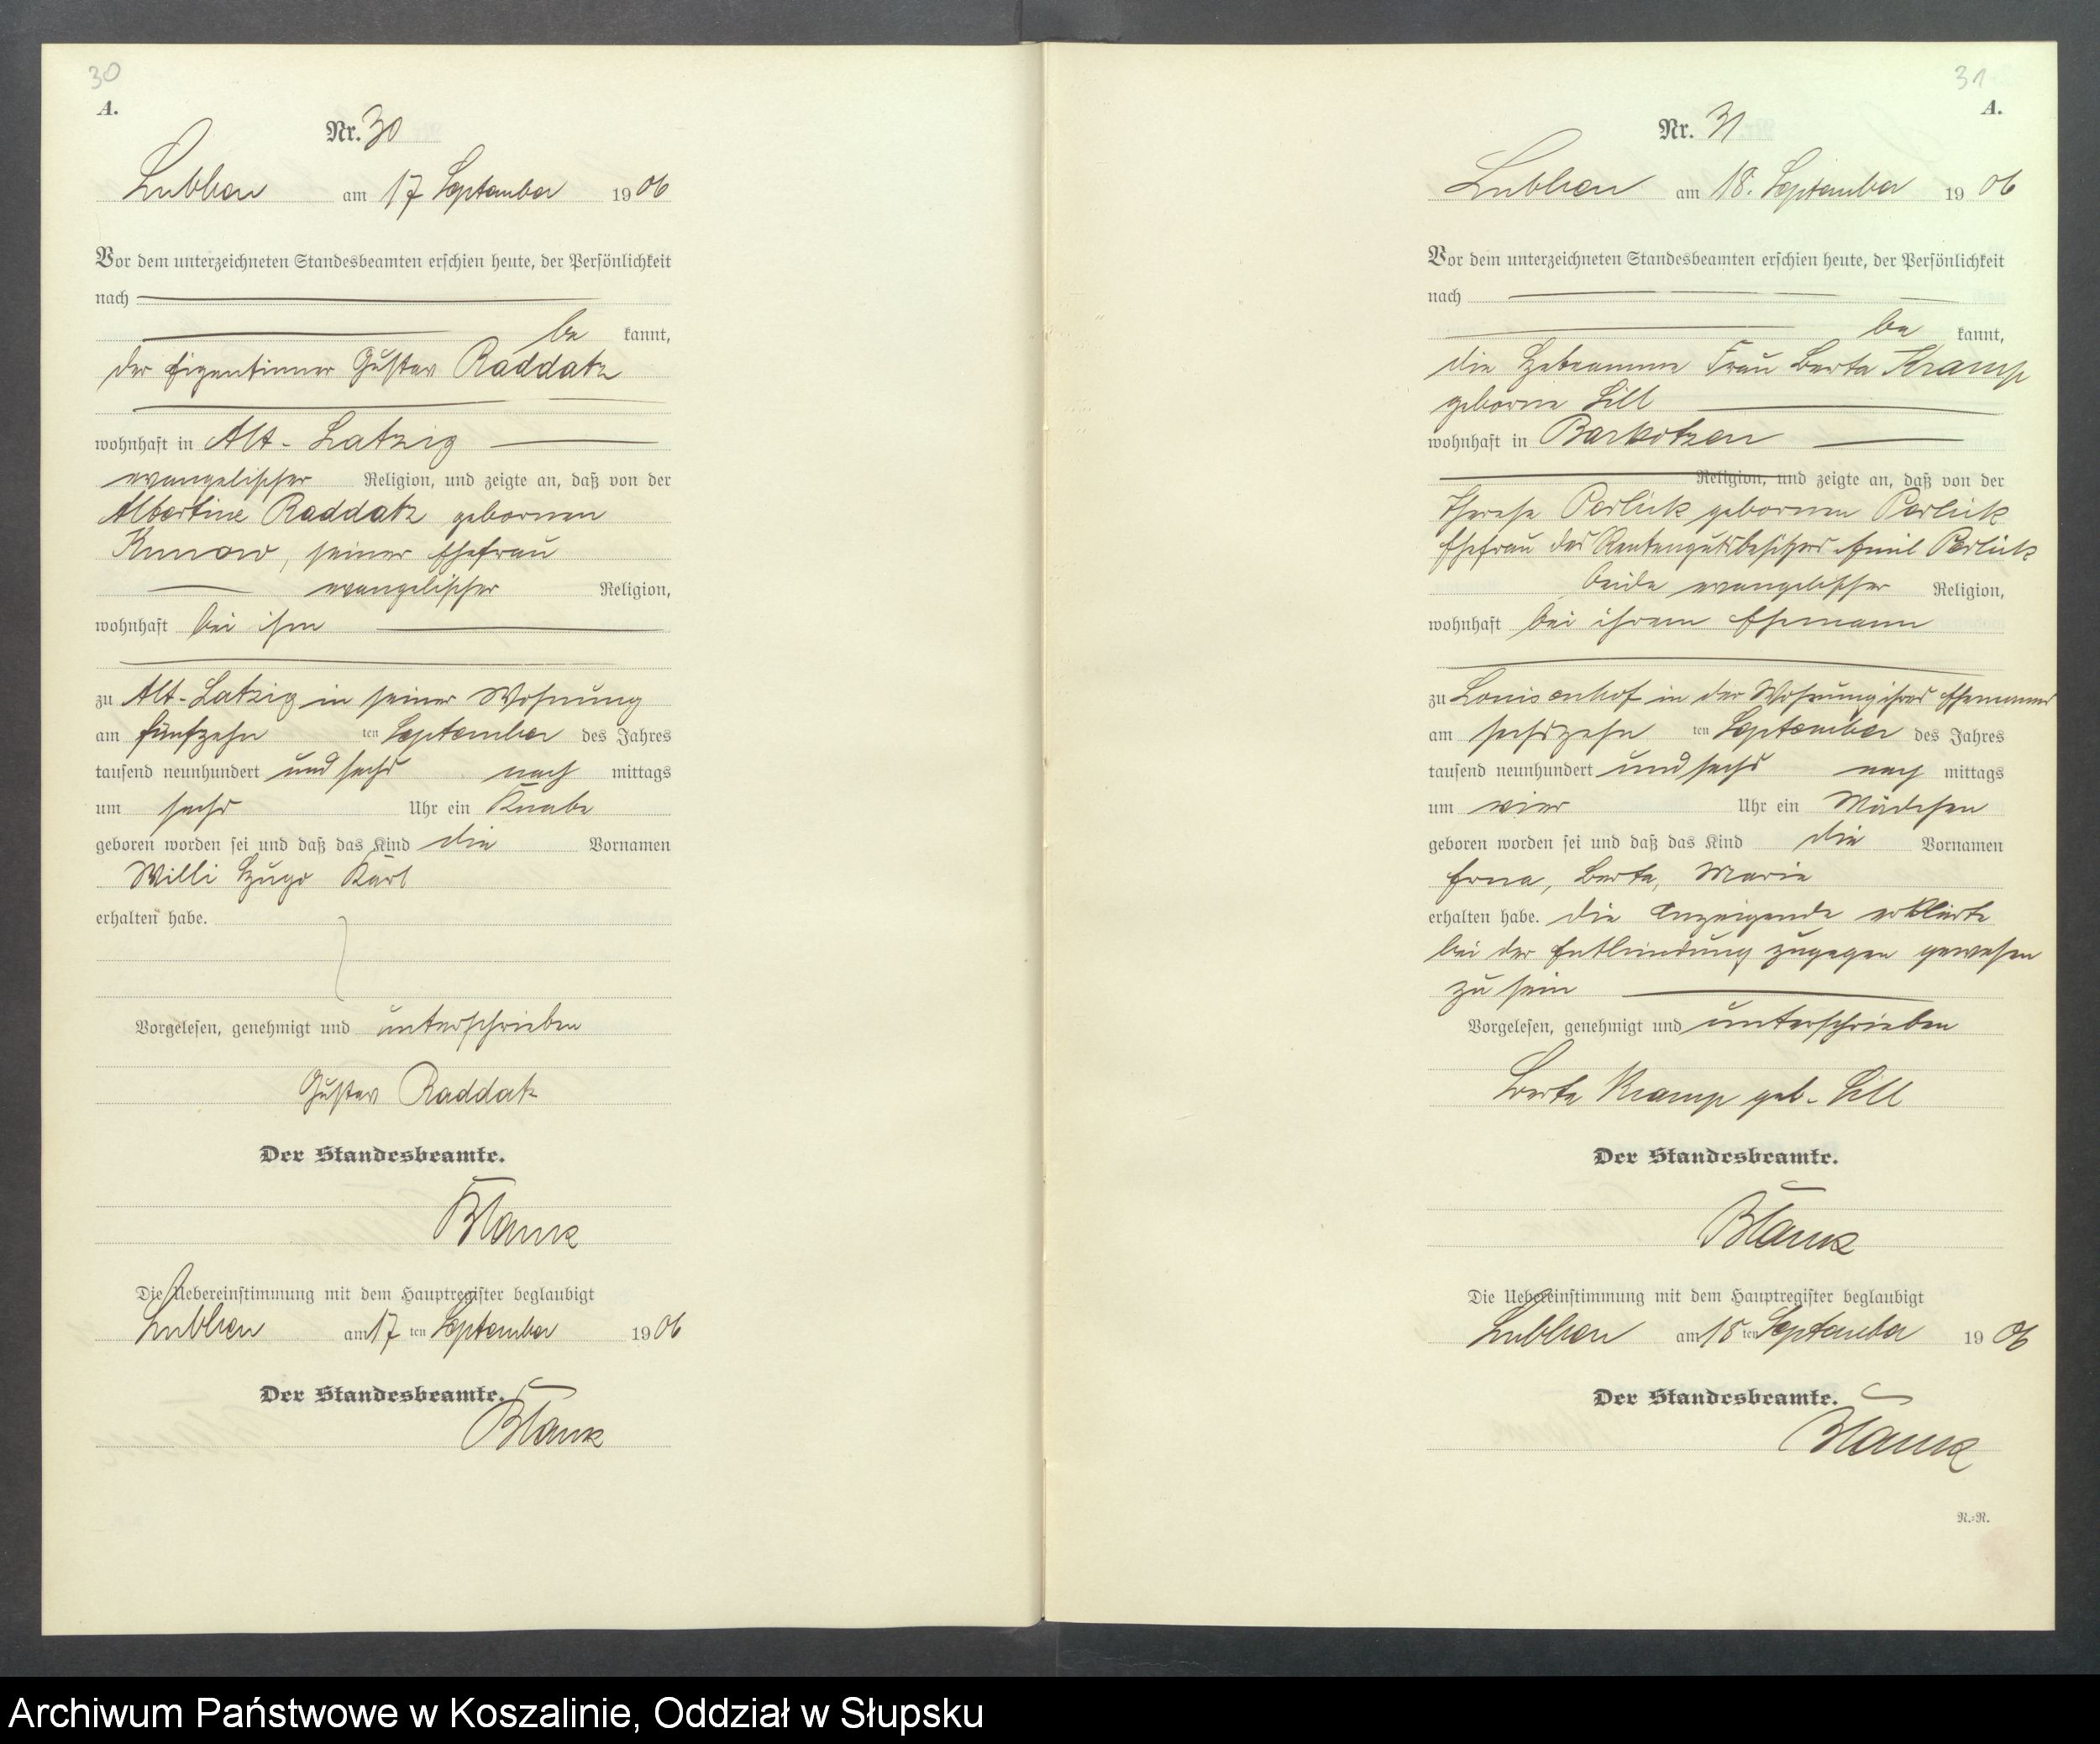 30
A.
Nr. 30
Lubben am 17 September 1906
Vor dem unterzeichneten Standesbeamten erschien heute, der Persönlichkeit
nach
be kannt,
der Eigentümer Gustav Raddatz
wohnhaft in Alt-Latzig
evangelischer Religion, und zeigte an, daß von der
Albertine Raddatz gebornen
Kunow, seiner Ehefrau
evangelischer Religion,
wohnhaft bei ihm
zu Alt-Latzig in seiner Wohnung
am fünfzehn ten September des Jahres
tausend neunhundert und sechs nach mittags
um sechs Uhr ein Knabe
geboren worden sei und daß das Kind die Vornamen
Willi Hugo Karl
erhalten habe.
Vorgelesen, genehmigt und unterschrieben
Gustav Raddatz
Der Standesbeamte.
Blank
Die Uebereinstimmung mit dem Hauptregister beglaubigt
Lubben am 17 ten September 1906
Der Standesbeamte.
Blank
31
A.
Nr. 31
Lubben am 18. September 1906
Vor dem unterzeichneten Standesbeamten erschien heute, der Persönlichkeit
nach
be kannt,
die Hebeamme Frau Berta Kramp
geborne Lill
wohnhaft in Barkotzen
Religion, und zeigte an, daß von der
Therese Perlick gebornen Perlick
Ehefrau des Rentengutsbesitzers Emil Perlick
beide evangelischer Religion,
wohnhaft bei ihrem Ehemann
zu Louisenhof in der Wohnung ihres Ehemannes
am sechszehn ten September des Jahres
tausend neunhundert und sechs nach mittags
um vier Uhr ein Mädchen
geboren worden sei und daß das Kind die Vornamen
Erna, Berta, Marie
erhalten habe. Die Anzeigende erklärte
bei der Entbindung zugegen gewesen
zu sein
Vorgelesen, genehmigt und unterschrieben
Berta Kramp geb. Lill
Der Standesbeamte.
Blank
Die Uebereinstimmung mit dem Hauptregister beglaubigt
Lubben am 18 ten September 1906
Der Standesbeamte.
Blank
N.=R.
Archiwum Państwowe w Koszalinie, Oddział w Słupsku